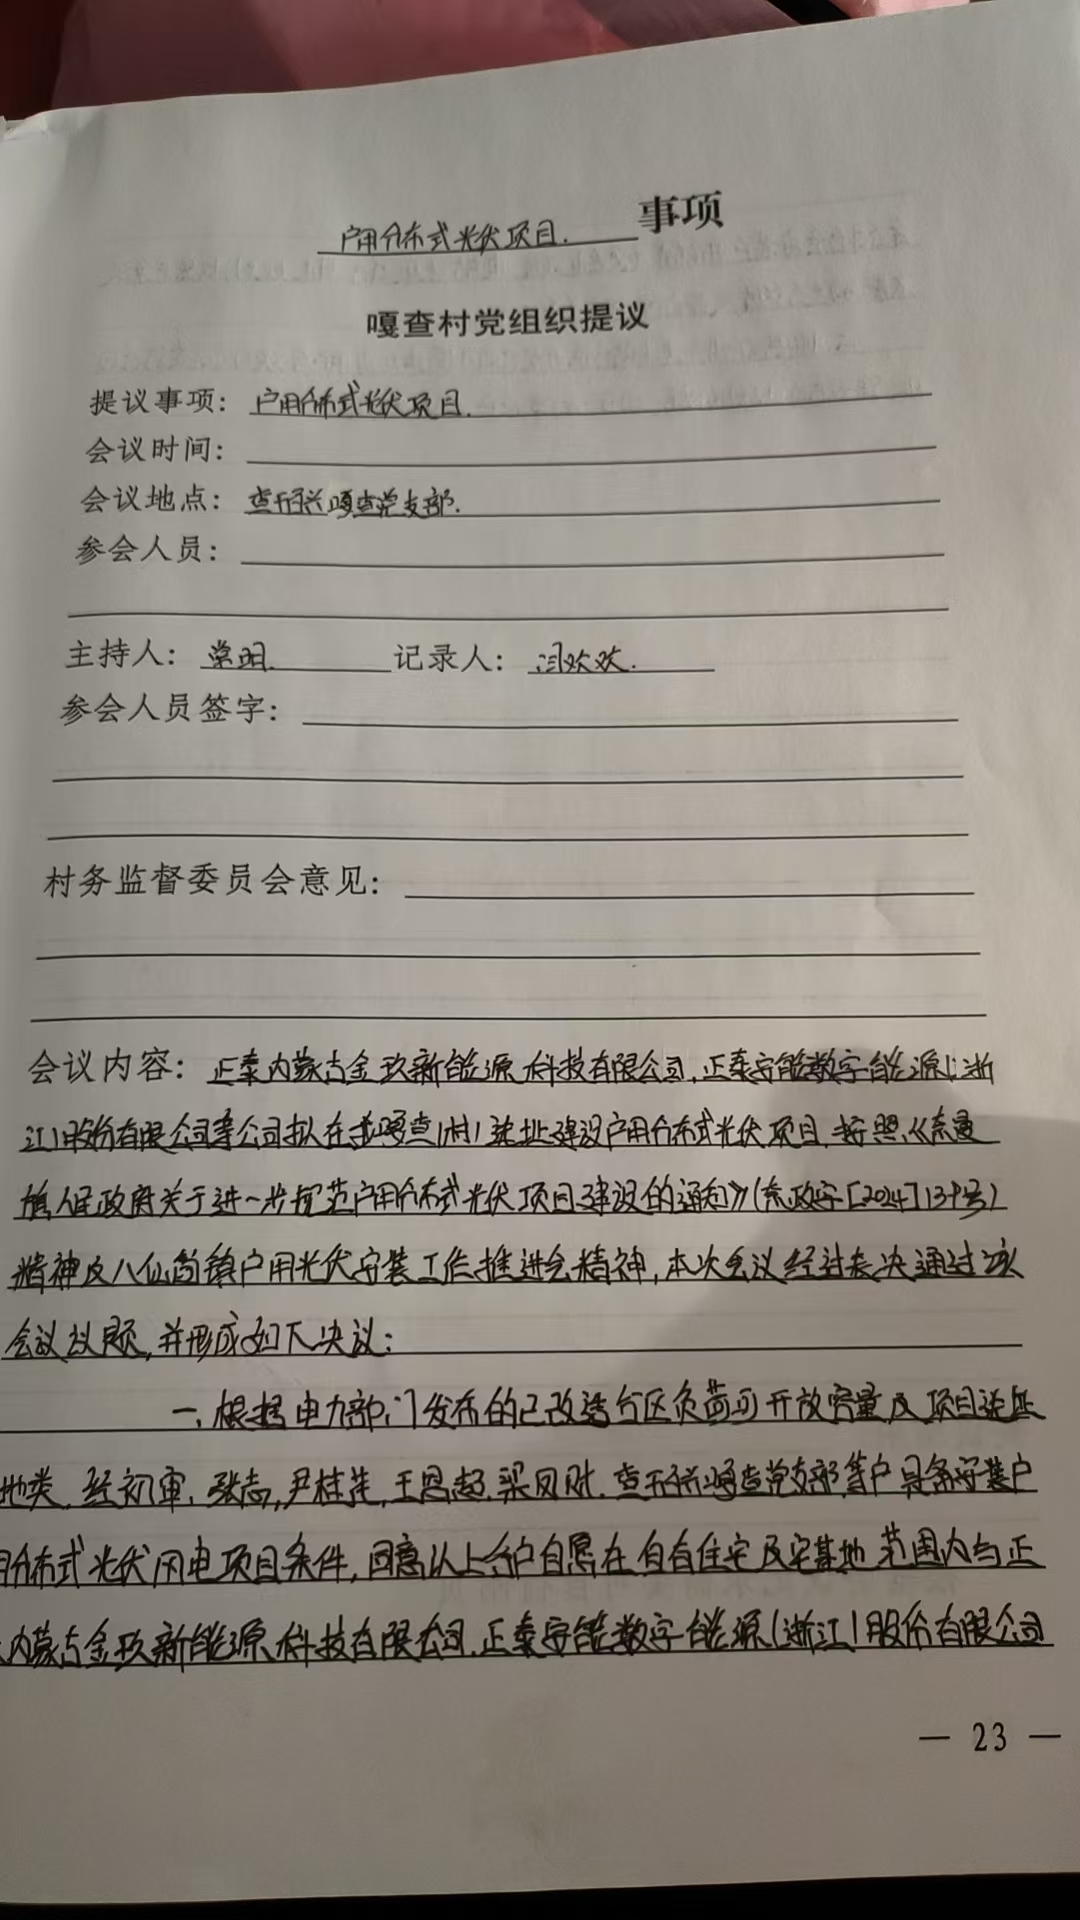 户用分布式光伏项目. 事项
嘎查村党组织提议
提议事项: 户用分布式光伏项目.
会议时间:
会议地点: 查干 嘎查党支部.
参会人员:
主持人: 常明. 记录人: 闫欢欢.
参会人员签字:
村务监督委员会意见:
会议内容: 正泰内蒙古金玖新能源科技有限公司,正泰安能数字能源(浙
江)股份有限公司等公司拟在我嘎查(村)选址建设户用分布式光伏项目,按照《奈曼
旗人民政府关于进一步规范户用分布式光伏项目建设的通知》(奈政字[2024]139号)
精神及八仙筒镇户用光伏安装工作推进会精神,本次会议经过表决通过该
会议议题,并形成如下决议:
一、根据电力部门发布的已改造台区负荷可开放容量及项目选址
地类,经初审,张志,尹桂 ,王恩超,梁凤财,查干 嘎查党支部,等户具备安装户
用分布式光伏风电项目条件,同意以上 户自愿在自有住宅及宅基地范围内与正
内蒙古金玖新能源科技有限公司,正泰安能数字能源(浙江)股份有限公司
— 23 —